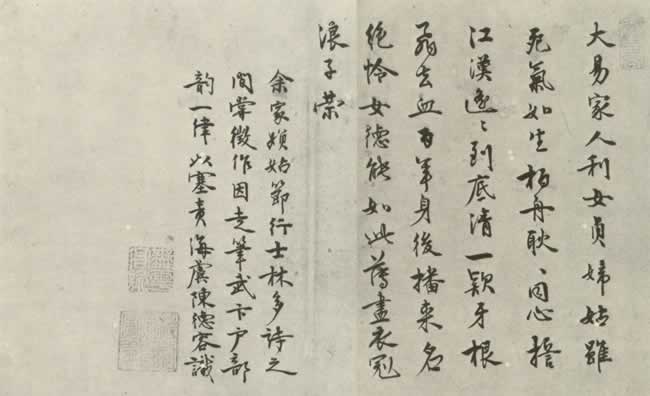 大易家人利女貞婦姑雖
死氣如生柏舟耿〻同心
江漢〻到底清一顆牙根
去血百年身後播來名
絕怜女德能如此盡衣冠
浪子榮
余家姑節行士林多詩之
間嘗徵作因走筆武卞戶部
韵一律以塞責海虞陳德容識